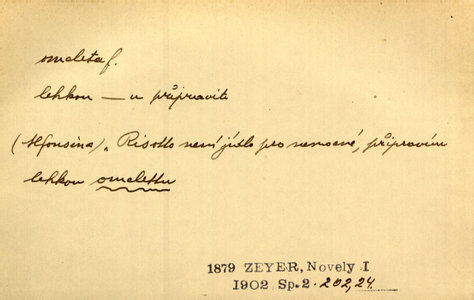 omeleta f.
lehkou — u připraviti
(Alfonsina) „Risotto není jídlo pro nemocné, připravím
lehkou omelettu
1879 ZEYER, Novely I
1902 Sp. 2. 202, 24.